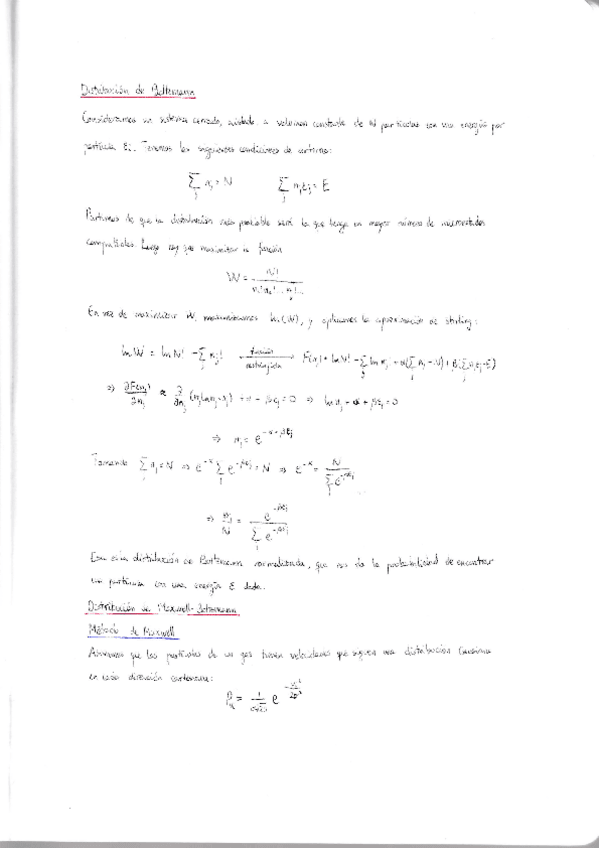 Distribución de Boltzmann
Consideramos un sistema cerrado, aislado a volumen constante de N partículas con una energía por
partícula εᵢ. Tenemos las siguientes condiciones de entorno:
∑ⱼ nⱼ = N ∑ⱼ nⱼεⱼ = E
Partimos de que la distribución más probable será la que tenga un mayor número de microestados
compatibles. Luego hay que maximizar la función
W = N! / n₁!n₂!...nⱼ!...
En vez de maximizar W, maximizamos ln(W), y aplicamos la aproximación de Stirling:
ln W = ln N! - ∑ⱼ nⱼ! función restringida → F(nⱼ) = ln N! - ∑ⱼ ln nⱼ! - α(∑ⱼ nⱼ - N) + β(∑ⱼ nⱼεⱼ - E)
⇒ ∂F(nⱼ)/∂nⱼ ≈ ∂/∂nⱼ (nⱼ ln nⱼ - nⱼ) + α - βεⱼ = 0 ⇒ ln nⱼ + α + βεⱼ = 0
⇒ nⱼ = e^(-α-βεⱼ)
Tomando ∑ⱼ nⱼ = N ⇒ e^(-α) ∑ⱼ e^(-βεⱼ) = N ⇒ e^(-α) = N / ∑ⱼ e^(-βεⱼ)
⇒ nⱼ/N = e^(-βεⱼ) / ∑ⱼ e^(-βεⱼ)
Esa es la distribución de Boltzmann normalizada, que nos da la probabilidad de encontrar
una partícula con una energía ε dada.
Distribución de Maxwell-Boltzmann
Método de Maxwell
que las partículas de un gas tienen velocidades que siguen una distribución Gaussiana
en cada dirección cartesiana: